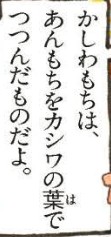 かしわもちは、
あんもちをカシワの葉で
つつんだものだよ。
は